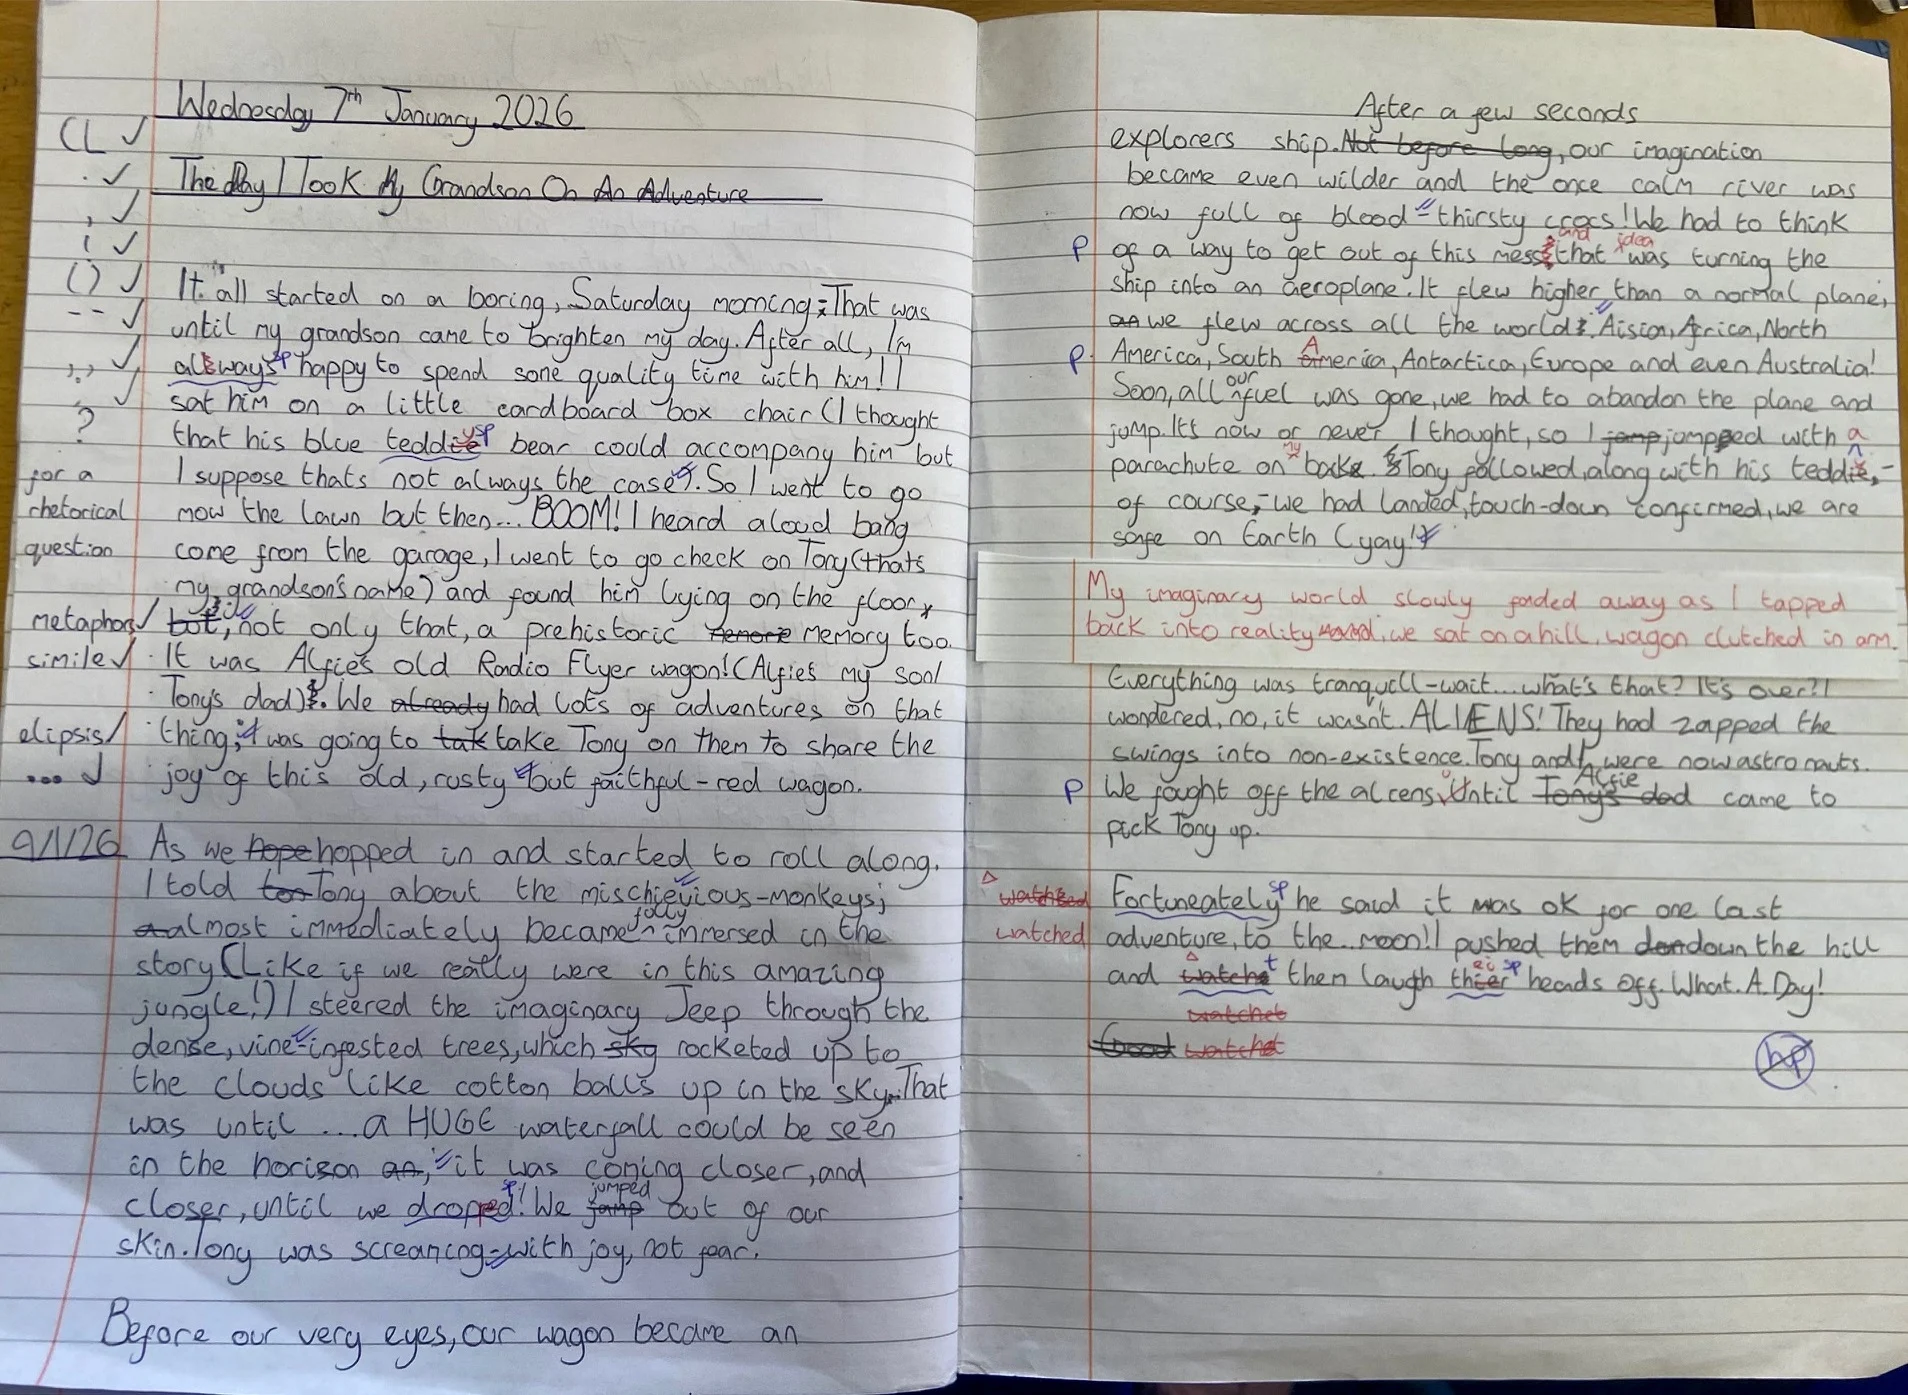 Wednesday 7th January 2026
CL ✓
. ✓
The Day I Took My Grandson On An Adventure
, ✓
! ✓
() ✓
It all started on a boring, Saturday morning. That was
-- ✓
until my grandson came to brighten my day. After all, I'm
alsways sp happy to spend some quality time with him! I
;,; ✓
sat him on a little cardboard box chair (I thought
✓
?
that his blue teddiey sp bear could accompany him but
for a
I suppose thats not always the case?). So I went to go
rhetorical
mow the lawn but then... BOOM! I heard aloud bang
question
come from the garage, I went to go check on Tony (thats
my grandson's name) and found him lying on the floor,
metaphors ✓
but, not only that, a prehistoric memorie memory too.
simile ✓
It was Alfie's old Radio Flyer wagon! (Alfie's my son/
Tony's dad). We already had lots of adventures on that
elipsis ✓
thing; it was going to tak take Tony on them to share the
... ✓
joy of this old, rusty -but faithful- red wagon.
9/1/26
As we hope hopped in and started to roll along.
I told too Tony about the mischievious-monkeys;
a almost immediately became fully immersed in the
story (Like if we really were in this amazing
jungle!) I steered the imaginary Jeep through the
dense, vine-infested trees, which sky rocketed up to
the clouds like cotton balls up in the sky. That
was until ... a HUGE waterfall could be seen
in the horison an, it was coming closer, and
closer, until we dropped sp! We jump jumped out of our
skin. Tony was screaming-with joy, not fear.
Before our very eyes, our wagon became an
After a few seconds
explorers ship. Not before long, our imagination
became even wilder and the once calm river was
now full of blood-thirsty crocs! We had to think
p
of a way to get out of this mess and that idea was turning the
ship into an aeroplane. It flew higher than a normal plane,
an we flew across all the world: Aision, Africa, North
p
America, South America, Antartica, Europe and even Australia!
Soon, all our fuel was gone, we had to abandon the plane and
jump. It's now or never I thought, so I jomp jumpped with a
parachute on my back. Tony followed, along with his teddie,-
of course,- we had landed, touch-down confirmed, we are
safe on Earth (yay!)
My imaginary world slowly faded away as I tapped
back into reality. we sat on a hill, wagon clutched in arm.
Everything was tranquill-wait... what's that? It's over?! I
wondered, no, it wasn't. ALIENS! They had zapped the
swings into non-existence. Tony and I were now astronauts.
p
We fought off the alcens, until Tony's dad Alfie came to
pick Tony up.
Fortuneately sp he said it was ok for one last
watched
adventure, to the.. moon! I pushed them dow down the hill
and watche t then laugh thier ei sp heads off. What. A. Day!
watchet
Good watchet
hp